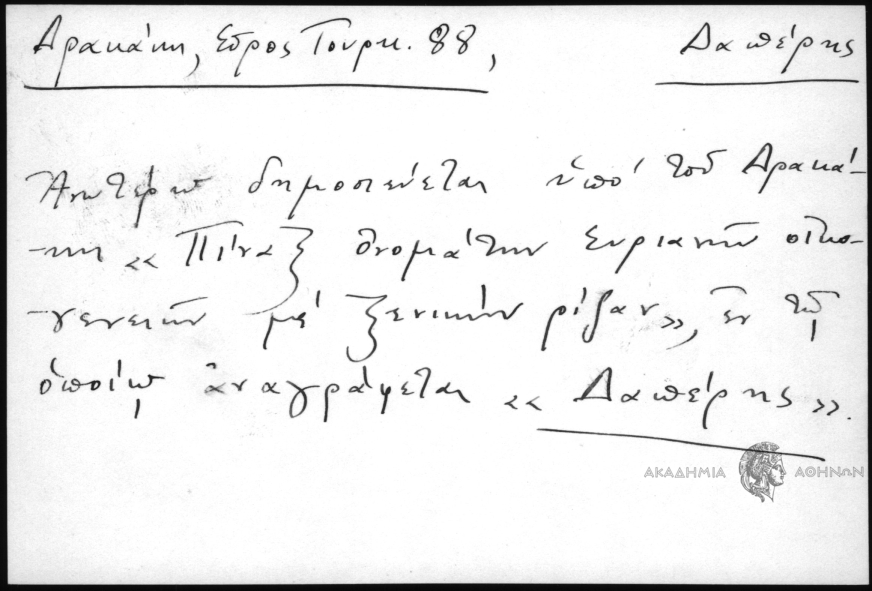 Δρακάκη, Σύρος Τουρκ. 88,
Δαπέρης
Ἀνωτέρω δημοσιεύεται ὑπό τοῦ Δρακά-
-κη «Πίναξ ὀνομάτων Συριανῶν οἰκο-
-γενειῶν μέ ξενικήν ρίζαν», ἐν τῷ
ὁποίῳ ἀναγράφεται «Δαπέρης».
ΑΚΑΔΗΜΙΑ ΑΘΗΝΩΝ